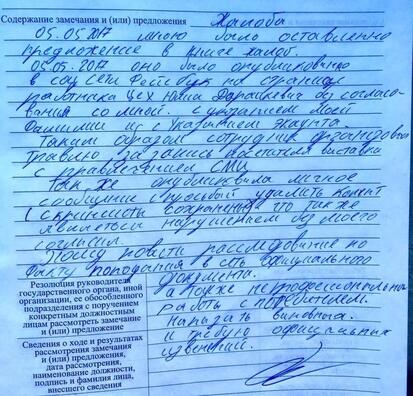 Содержание замечания и (или) предложения Жалоба
05.05.2017 мною было оставленно
предложение в книге жалоб.
05.05.2017 оно было опубликовано
в соц сети Фестбук на странице
работника Цех Юлия Дорашкевич без согласо-
вания со мной. с указанием моей
Фамилии и с указанием экаунта
Таким образом сотрудник организовал
травлю посетителя выставки
с СМИ
Так же опубликовила личное
сообщение с просьбой удалить комент
(скриншоты сохранены) что также
является нарушением без моего
согласия.
Прошу повести расследование по
факту попадания в сеть официального
документа.
Резолюция руководителя
государственного органа, иной
организации, ее обособленного
подразделения с поручением
конкретным должностным
лицам рассмотреть замечание
и (или) предложение
а также непрофессиональной
работы с потребителем.
Наказать виновных.
и требую официальных
извенений.
Сведения о ходе и результатах
рассмотрения замечания
и (или) предложения,
дата рассмотрения,
наименование должности,
подпись и фамилия лица,
внесшего сведения